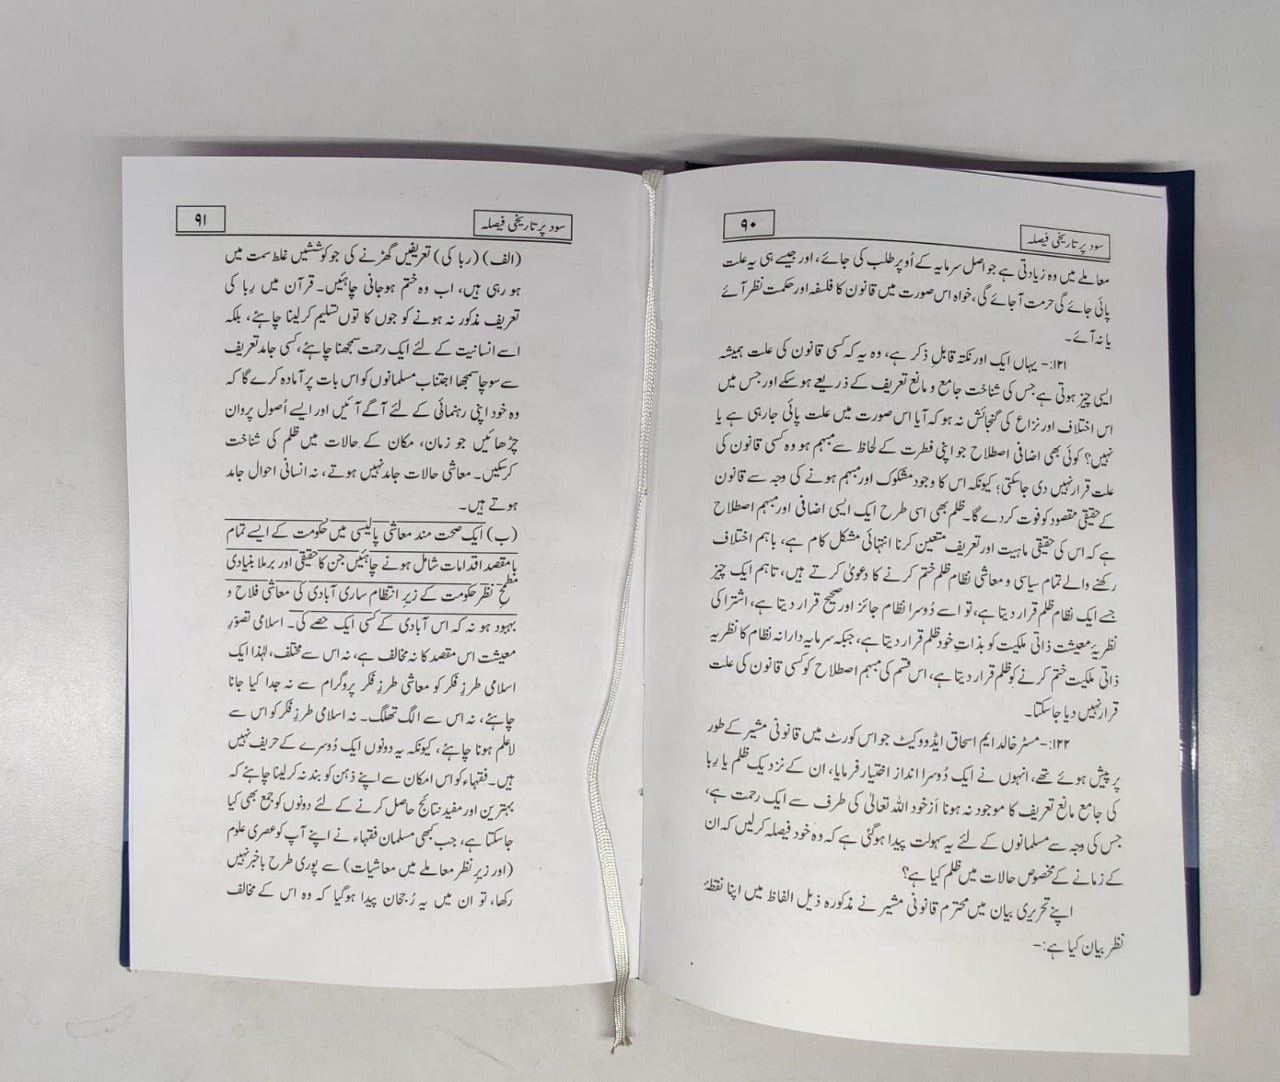 سود پر تاریخی فیصلہ
۹۰
معاملے میں وہ زیادتی ہے جو اصل سرمایہ کے اُوپر طلب کی جائے، اور جیسے ہی یہ علت
پائی جائے گی حرمت آجائے گی، خواہ اس صورت میں قانون کا فلسفہ اور حکمت نظر آئے
یا نہ آئے۔
۱۲۱:- یہاں ایک اور نکتہ قابلِ ذکر ہے، وہ یہ کہ کسی قانون کی علت ہمیشہ
ایسی چیز ہوتی ہے جس کی شناخت جامع و مانع تعریف کے ذریعے ہوسکے اور جس میں
اس اختلاف اور نزاع کی گنجائش نہ ہو کہ آیا اس صورت میں علت پائی جارہی ہے یا
نہیں؟ کوئی بھی اضافی اصطلاح جو اپنی فطرت کے لحاظ سے مبہم ہو وہ کسی قانون کی
علت قرار نہیں دی جاسکتی؛ کیونکہ اس کا وجود مشکوک اور مبہم ہونے کی وجہ سے قانون
کے حقیقی مقصود کو فوت کردے گا۔ ظلم بھی اسی طرح ایک ایسی اضافی اور مبہم اصطلاح
ہے کہ اس کی حقیقی ماہیت اور تعریف متعین کرنا انتہائی مشکل کام ہے، باہم اختلاف
رکھنے والے تمام سیاسی و معاشی نظام ظلم ختم کرنے کا دعویٰ کرتے ہیں، تاہم ایک چیز
جسے ایک نظام ظلم قرار دیتا ہے، تو اسے دُوسرا نظام جائز اور صحیح قرار دیتا ہے، اشتراکی
نظریۂ معیشت ذاتی ملکیت کو بذاتِ خود ظلم قرار دیتا ہے، جبکہ سرمایہ دارانہ نظام کا نظریہ
ذاتی ملکیت ختم کرنے کو ظلم قرار دیتا ہے، اس قسم کی مبہم اصطلاح کو کسی قانون کی علت
قرار نہیں دیا جاسکتا۔
۱۲۲:- مسٹر خالد ایم اسحاق ایڈووکیٹ جو اس کورٹ میں قانونی مشیر کے طور
پر پیش ہوئے تھے، انہوں نے ایک دُوسرا انداز اختیار فرمایا، ان کے نزدیک ظلم یا رِبا
کی جامع مانع تعریف کا موجود نہ ہونا ازخود اللہ تعالیٰ کی طرف سے ایک رحمت ہے،
جس کی وجہ سے مسلمانوں کے لئے یہ سہولت پیدا ہوگئی ہے کہ وہ خود فیصلہ کرلیں کہ ان
کے زمانے کے مخصوص حالات میں ظلم کیا ہے؟
اپنے تحریری بیان میں محترم قانونی مشیر نے مذکورہ ذیل الفاظ میں اپنا نقطۂ
نظر بیان کیا ہے:-
سود پر تاریخی فیصلہ
۹۱
(الف) (ربا کی) تعریفیں گھڑنے کی جو کوششیں غلط سمت میں
ہو رہی ہیں، اب وہ ختم ہوجانی چاہئیں۔ قرآن میں رِبا کی
تعریف مذکور نہ ہونے کو جوں کا توں تسلیم کرلینا چاہئے، بلکہ
اسے انسانیت کے لئے ایک رحمت سمجھنا چاہئے، کسی جامد تعریف
سے سوچا سمجھا اجتناب مسلمانوں کو اس بات پر آمادہ کرے گا کہ
وہ خود اپنی رہنمائی کے لئے آگے آئیں اور ایسے اُصول پروان
چڑھائیں جو زمان، مکان کے حالات میں ظلم کی شناخت
کرسکیں۔ معاشی حالات جامد نہیں ہوتے، نہ انسانی احوال جامد
ہوتے ہیں۔
(ب) ایک صحت مند معاشی پالیسی میں حکومت کے ایسے تمام
بامقصد اقدامات شامل ہونے چاہئیں جن کا حقیقی اور برملا بنیادی
مطمحِ نظر حکومت کے زیرِ انتظام ساری آبادی کی معاشی فلاح و
بہبود ہو نہ کہ اس آبادی کے کسی ایک حصے کی۔ اسلامی تصوّرِ
معیشت اس مقصد کا نہ مخالف ہے، نہ اس سے مختلف، لہٰذا ایک
اسلامی طرزِ فکر کو معاشی طرزِ فکر پروگرام سے نہ جدا کیا جانا
چاہئے، نہ اس سے الگ تھلگ۔ نہ اسلامی طرزِ فکر کو اس سے
لاعلم ہونا چاہئے، کیونکہ یہ دونوں ایک دُوسرے کے حریف نہیں
ہیں۔ فقہاء کو اس امکان سے اپنے ذہن کو بند نہ کرلینا چاہئے کہ
بہترین اور مفید نتائج حاصل کرنے کے لئے دونوں کو جمع بھی کیا
جاسکتا ہے، جب کبھی مسلمان فقہاء نے اپنے آپ کو عصری علوم
(اور زیرِ نظر معاملے میں معاشیات) سے پوری طرح باخبر نہیں
رکھا، تو ان میں یہ رُجحان پیدا ہوگیا کہ وہ اس کے مخالف